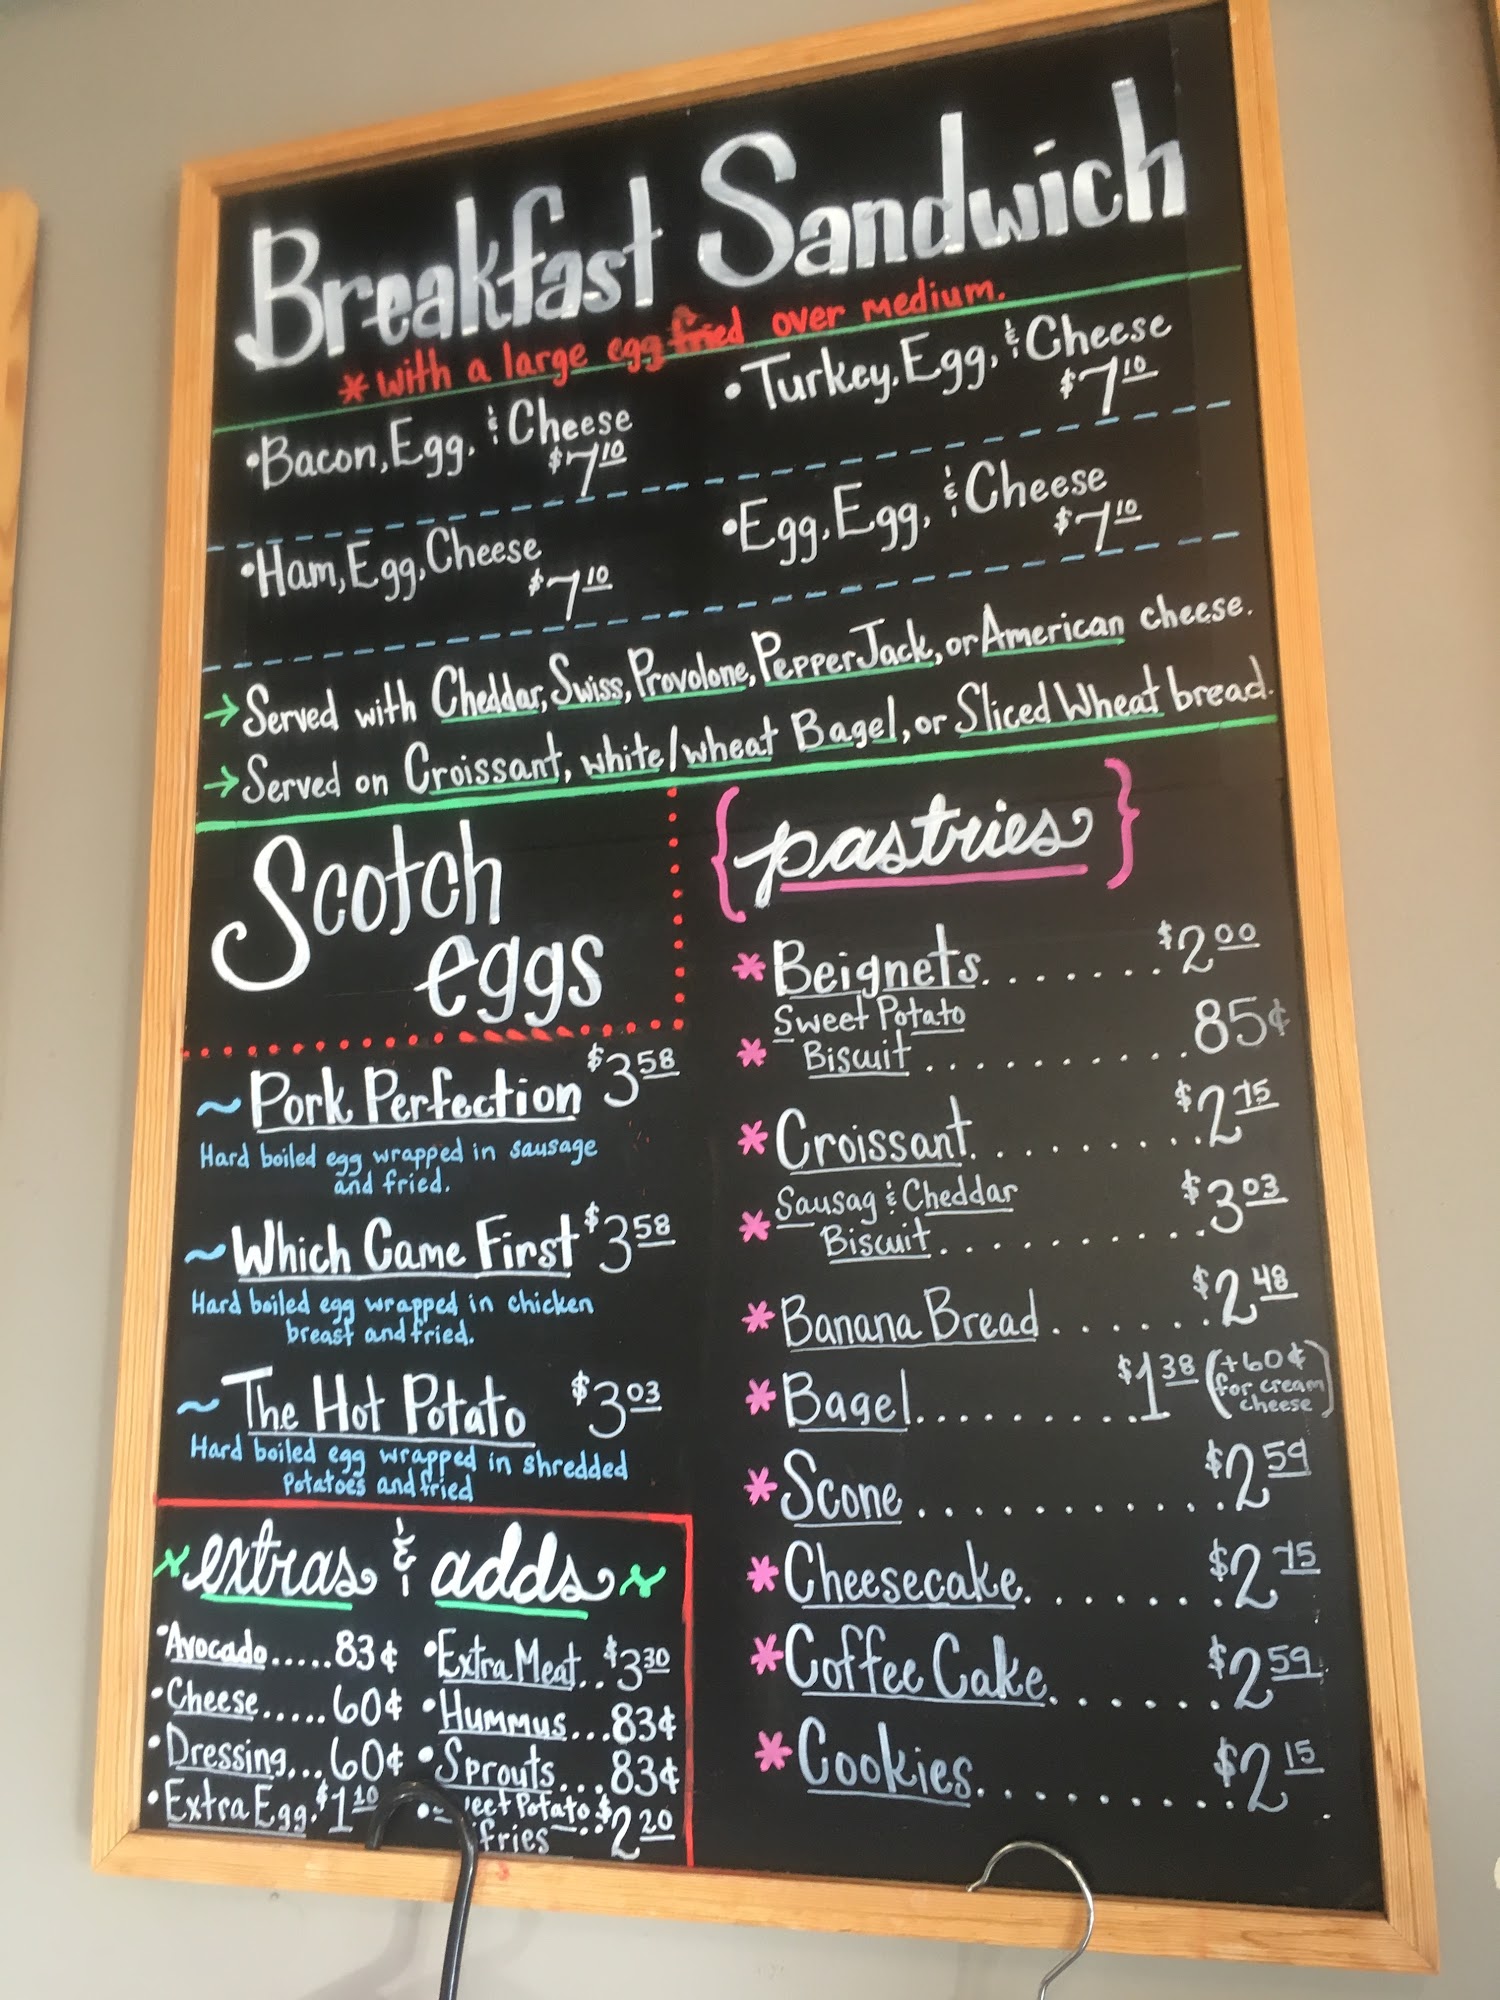 Breakfast Sandwich
* with a large egg fried over medium.
• Bacon, Egg, & Cheese
$7.10
• Turkey, Egg, & Cheese
$7.10
• Ham, Egg, Cheese
$7.10
• Egg, Egg, & Cheese
$7.10
→ Served with Cheddar, Swiss, Provolone, Pepper Jack, or American cheese.
→ Served on Croissant, white/wheat Bagel, or Sliced Wheat bread.
Scotch
eggs
~ Pork Perfection $3.58
Hard boiled egg wrapped in sausage
and fried.
~ Which Came First $3.58
Hard boiled egg wrapped in chicken
breast and fried.
~ The Hot Potato $3.03
Hard boiled egg wrapped in shredded
Potatoes and fried
extras & adds
• Avocado.....83¢
• Cheese.....60¢
• Dressing...60¢
• Extra Egg. $1.10
• Extra Meat..$3.30
• Hummus...83¢
• Sprouts...83¢
• Sweet Potato
fries ... $2.20
{pastries}
* Beignets.......$2.00
Sweet Potato
* Biscuit..........85¢
* Croissant.........$2.75
Sausag & Cheddar
* Biscuit..........$3.03
* Banana Bread......$2.48
* Bagel..........$1.38 (+60¢
for cream
cheese)
* Scone...........$2.59
* Cheesecake.......$2.75
* Coffee Cake......$2.59
* Cookies.........$2.15